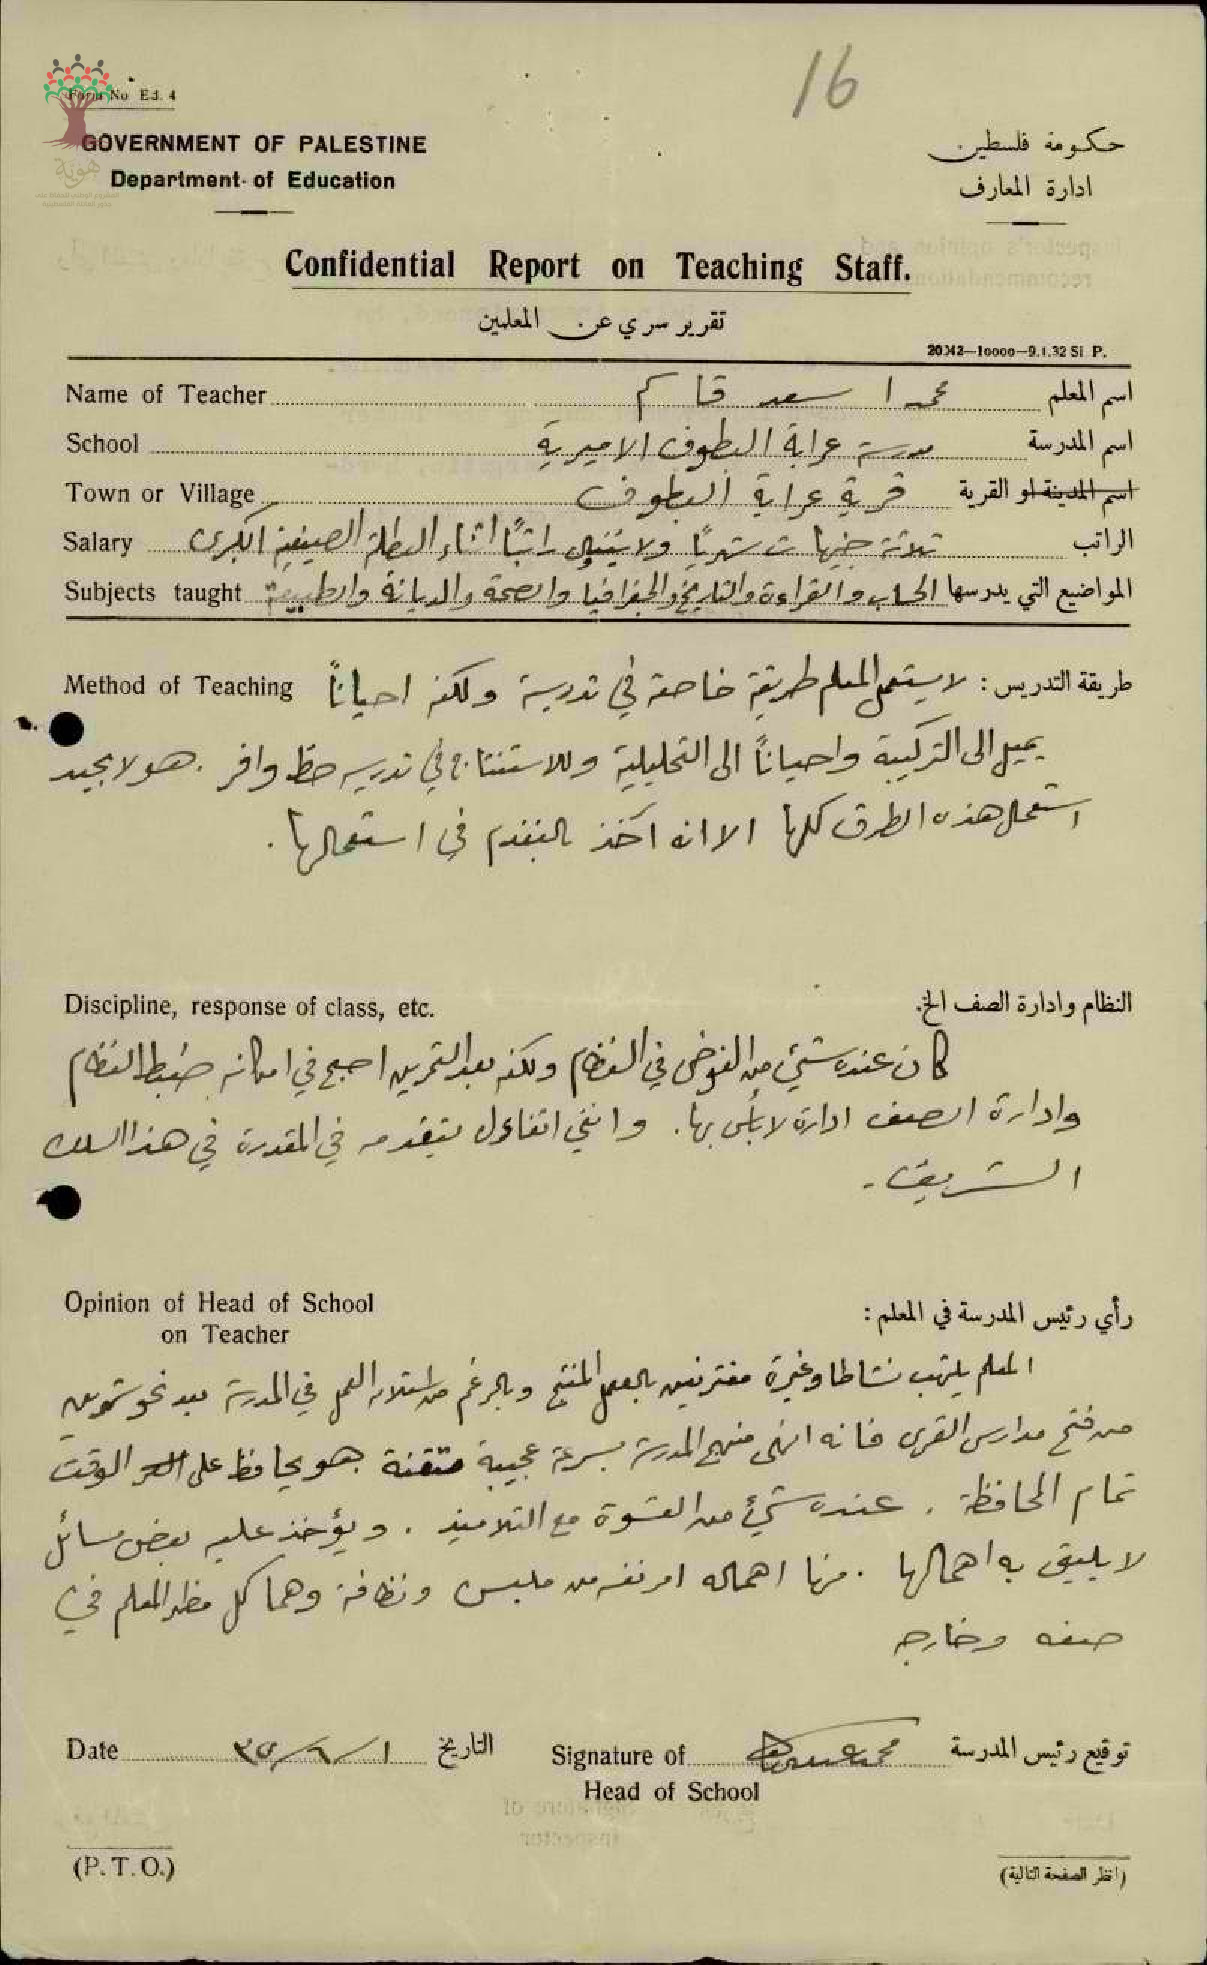 16
Form No Ed. 4
هوية
GOVERNMENT OF PALESTINE
Department of Education
حكومة فلسطين
ادارة المعارف
Confidential Report on Teaching Staff.
تقرير سري عن المعلمين
20342—10000—9.1.32 SI P.
Name of Teacher محمد اسعد قاسم اسم المعلم
School مدرسة عرابة البطوف الاميرية اسم المدرسة
Town or Village قرية عرابة البطوف اسم المدينة او القرية
Salary ثلاثة جنيهات شهرياً ولا يتناول راتباً اثناء العطلة الصيفية الكبرى الراتب
Subjects taught الحساب والقراءة والتاريخ والجغرافيا والصحة والديانة والطبيعة المواضيع التي يدرسها
Method of Teaching طريقة التدريس : لا يستعمل المعلم طريقة خاصة في تدريسه ولكنه احياناً
يميل الى التركيبية واحياناً الى التحليلية وللاستنتاج في تدريسه حظ وافر . هو لا يجيد
استعمال هذه الطرق كلها الا انه آخذ بالتقدم في استعمالها .
Discipline, response of class, etc. النظام وادارة الصف الخ.
كان عنده شيئ من الفوضى في النظام ولكنه بعد التمرين اصبح في امكانه ضبط النظام
وادارة الصف ادارة لا بأس بها . وانني اتفاءل بتقدمه في المقدرة في هذا السلك
الشريف .
Opinion of Head of School
on Teacher
رأي رئيس المدرسة في المعلم :
المعلم يلتهب نشاطا وغيرة مقترنين بالعمل المنتج وبالرغم من استلامه العمل في المدرسة بعد نحو شهرين
من فتح مدارس القرى فانه انهى منهج المدرسة بسرعة عجيبة متقنة هو يحافظ على الوقت
تمام المحافظة . عنده شيئ من القسوة مع التلاميذ . ويؤخذ عليه بعض مسائل
لا يليق به اهمالها . منها اهماله امر نفسه من ملبس ونظافة وهما كل مظهر المعلم في
صفه وخارجه
Date ١/٦/٣٥ التاريخ
Signature of
Head of School
محمد توقيع رئيس المدرسة
(P. T. O.)
(انظر الصفحة التالية)